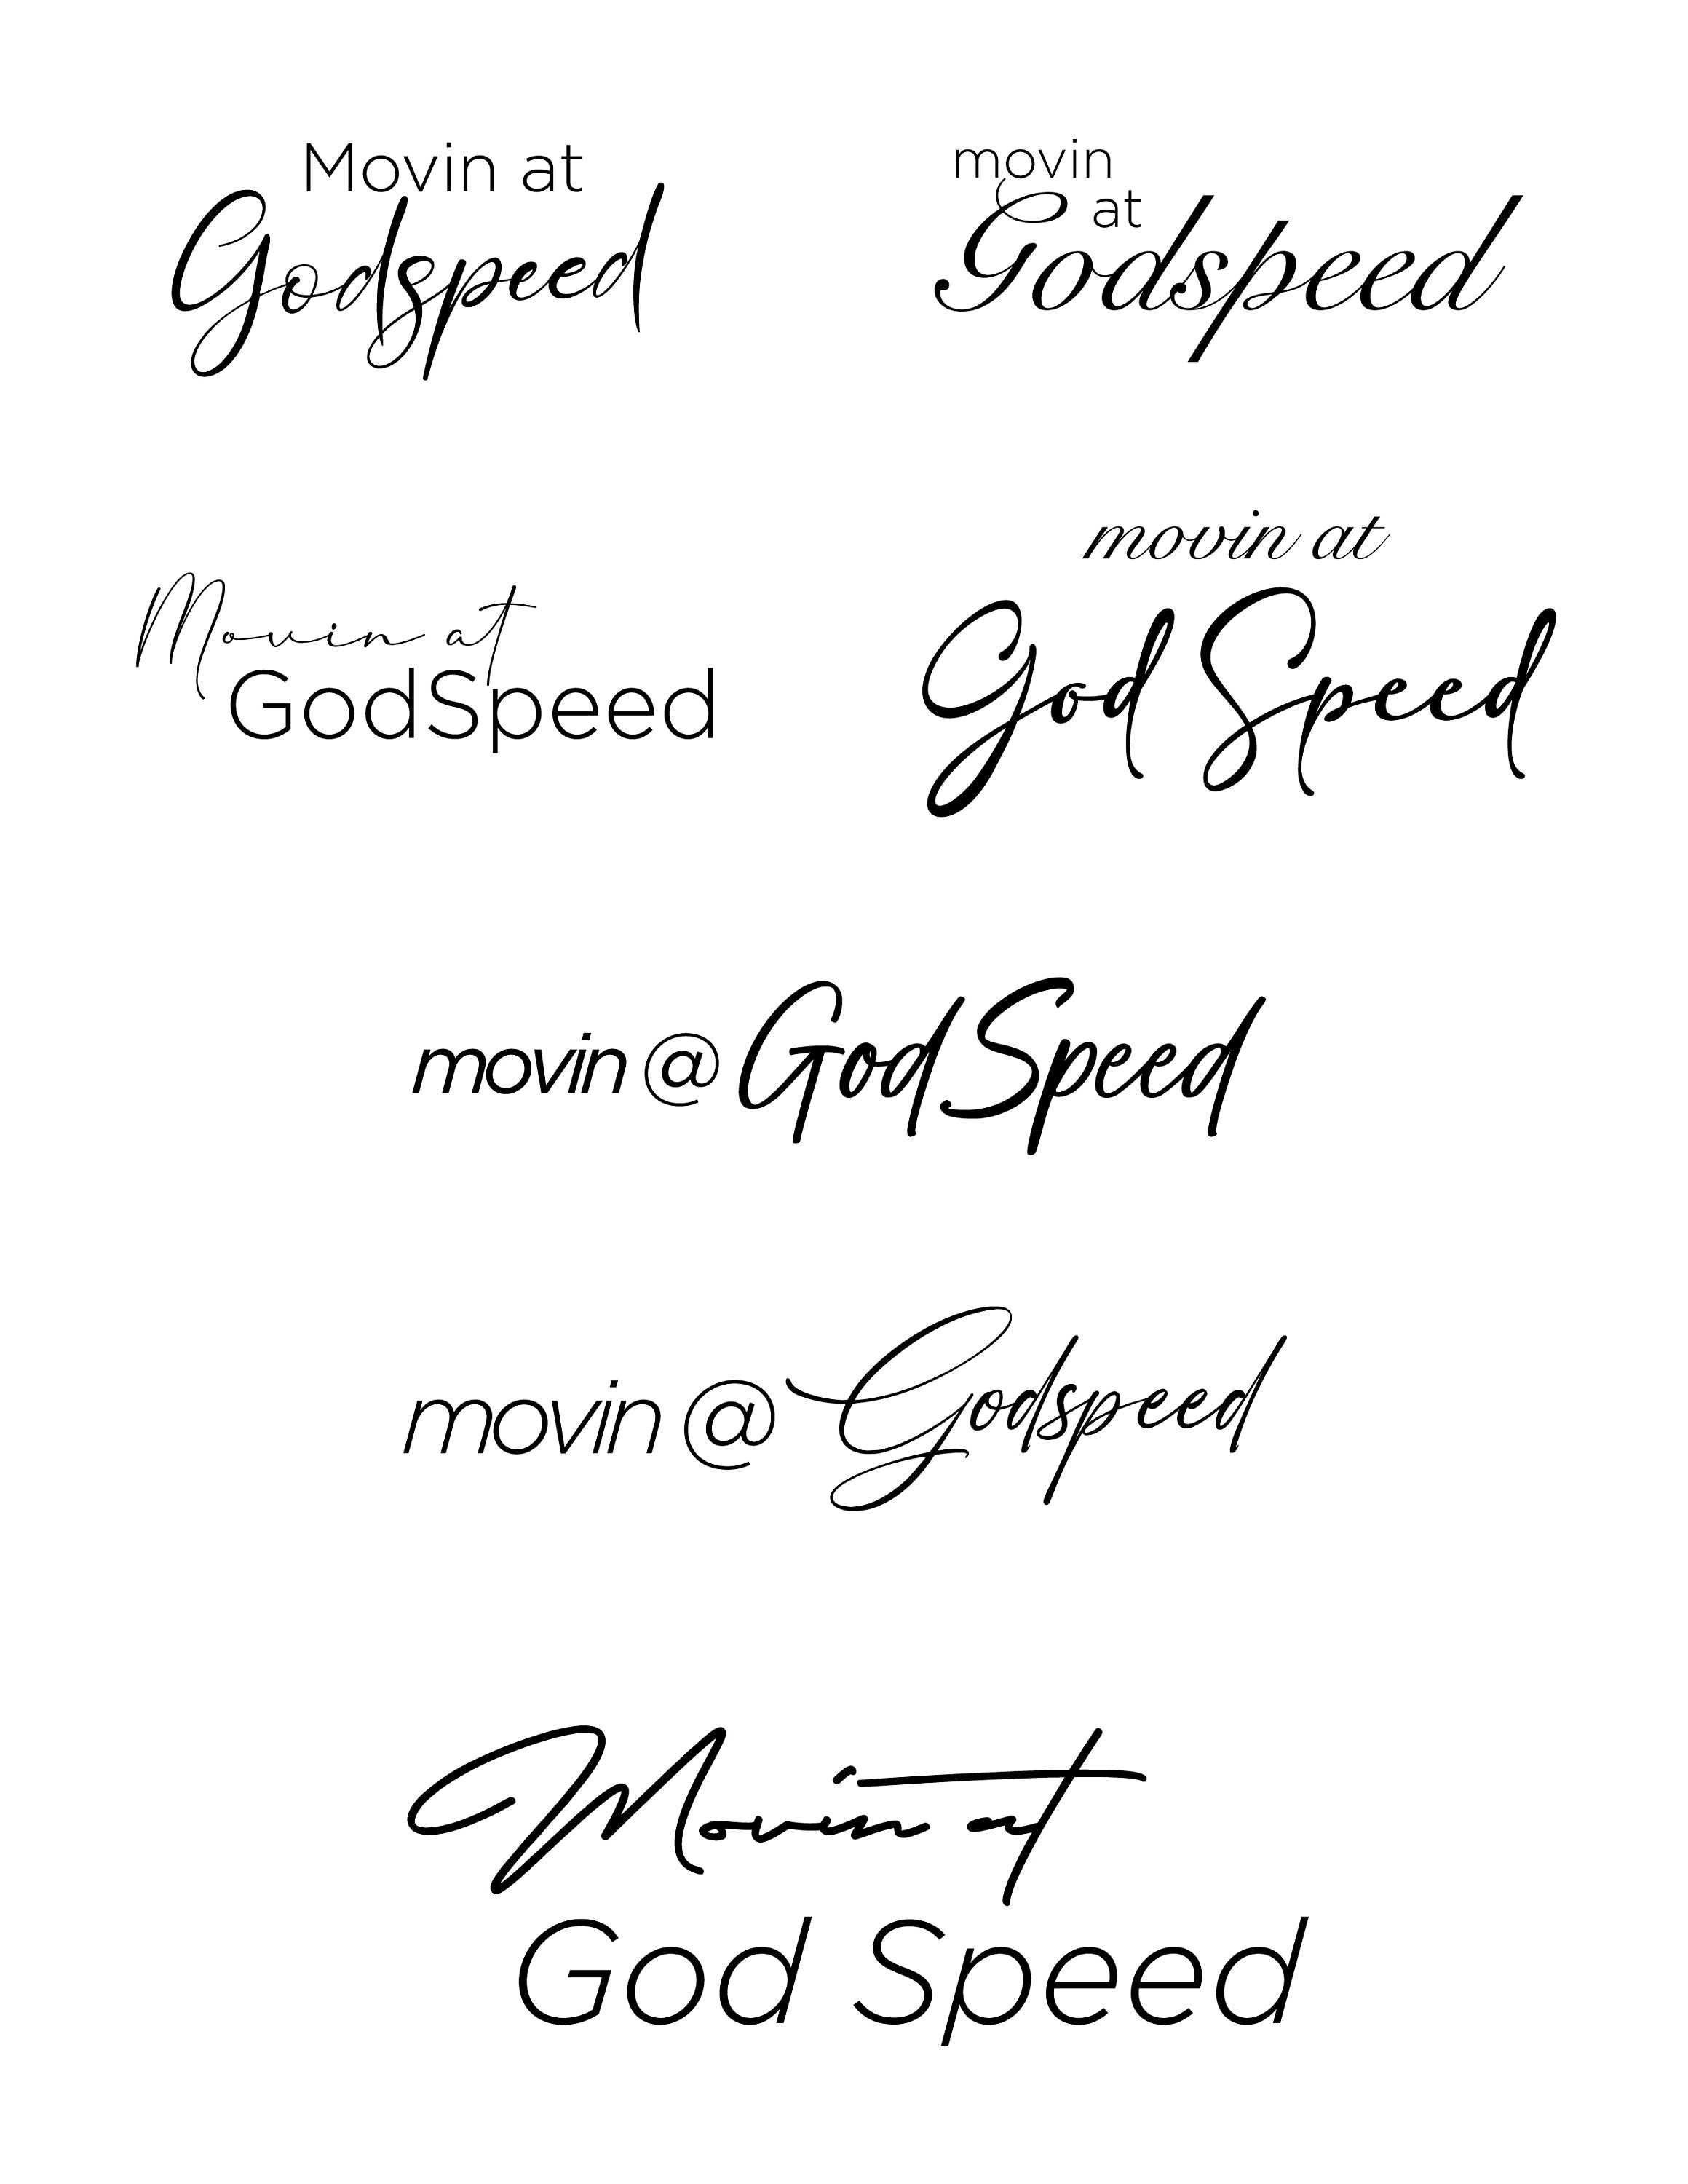 Movin at
Godspeed
movin
at
Godspeed
Movin at
GodSpeed
movin at
God Speed
movin @ GodSpeed
movin @ Godspeed
Movin at
God Speed